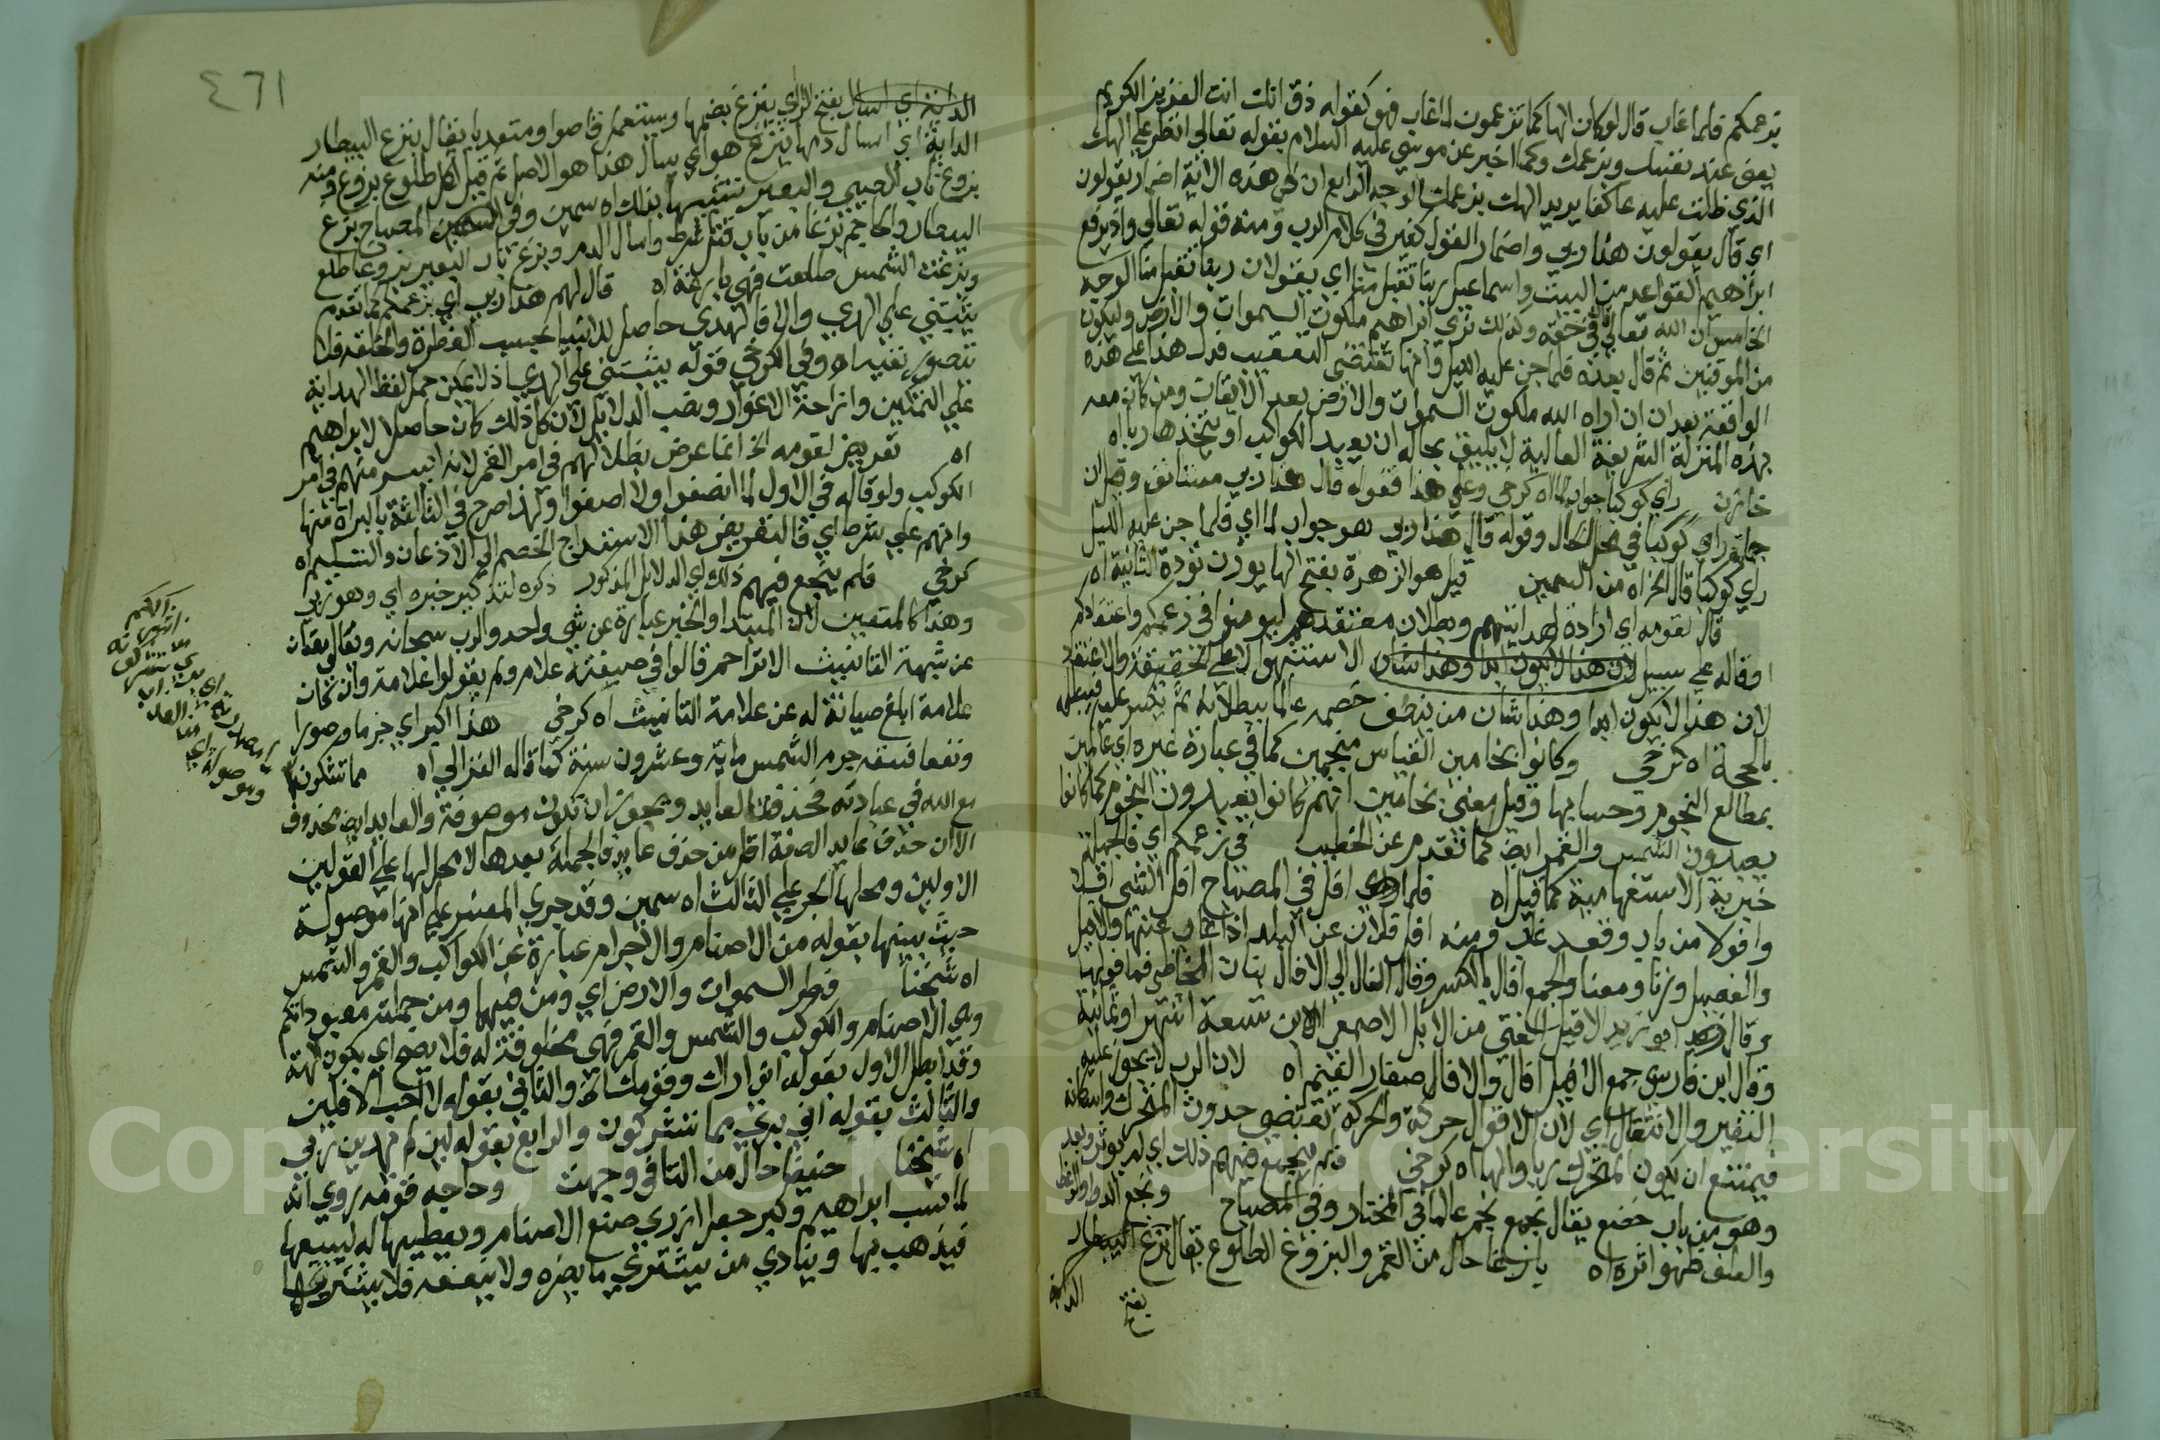 بزعمكم فلما غاب قال لو كان الها كما تزعمون لما غاب فهو كقوله ذق انك انت العزيز الكريم
يعني عند نفسك وبزعمك وكما اخبر عن موسي عليه السلام بقوله تعالي انظر الي الهك
الذي ظلت عليه عاكفا يريد الهك بزعمك الوجه الرابع ان في هذه الاية اضمار يقولون
اي قال يقولون هذا ربي واضمار القول كثير في كلام العرب ومنه قوله تعالي واذ يرفع
ابراهيم القواعد من البيت واسماعيل ربنا تقبل منا اي يقولان ربنا تقبل منا الوجه
الخامس ان الله تعالي قال في حقه وكذلك نري ابراهيم ملكوت السموات والارض وليكون
من الموقنين ثم قال بعده فلما جن عليه الليل والفا تقتضي التعقيب فدل هذا علي ان هذه
الواقعة بعد ان اراه الله ملكوت السموات والارض بعد الايقان ومن كان معه
بهذه المنزلة الشريفة العالية لا يليق بحاله ان يعبد الكواكب او يتخذها ربا اه
خازن راي كوكبا جواب لما اه كرخي وعلي هذا فقوله قال هذا ربي مستانف وقيل ان
جملة راي كوكبا في محل الحال وقوله قال هذا ربي هو جواب لما اي فلما جن عليه الليل
راي كوكبا قال الخ اه من السمين قيل هو الزهرة بفتح الها بوزن تؤدة الثانية اه
قال لقومه اي ارادة لهدايتهم وبطلان معتقدهم ليومنوا في زعمكم واعتقادكم
او قاله علي سبيل لان هذا لا يكون ابدا وهذا شان الاستهزا لا علي الحقيقة والاعتقاد
لان هذا لا يكون ابدا وهذا شان من ينصف خصمه عالما ببطلانه ثم يكر عليه فيبطله
بالحجة اه كرخي وكانوا نجامين القياس منجمين كما في عبارة غيره اي عالمين
بمطالع النجوم وحسابها وقيل معني نجامين انهم كانوا يعبدون النجوم كما كانوا
يعبدون الشمس والقمر ايضا كما تقدم عن الخطيب في زعمكم اي فالجملة
خبرية لا استفهامية كما قيل اه فلما افل في المصباح افل الشي افلا
وافولا من باب وقعد غاب ومنه افل فلان عن البلد اذا غاب عنها والافيل
والفصيل وزنا ومعنا والجمع افال بالكسر وقال الفارابي الافال بنات المخاض فما فوقها
وقال ابو زيد الافيل الفتي من الابل الاصمعي ابن تسعة اشهر او ثمانية
وقال ابن فارس جمع الافيل افال والافال صغار الغنم اه لان الرب لا يجوز عليه
التغير والانتقال اي لان الافول حركة والحركة تقتضي حدوث المتحرك وامكانه
فيمتنع ان يكون المتحرك ربا والها اه كرخي فلم ينجع فيهم ذلك اي لم يوثر ولم يفد
وهو من باب خضع يقال نجع نجوعا كما في المختار وفي المصباح ونجع الدوا والوعظ
والعلف ظهر اثره اه بازغا حال من القمر والبزوغ الطلوع يقال بزغ
بفتح
٤٦١
الدابة اي اسال بفتح الزاي يبزغ بضمها ويستعمل قاصرا ومتعديا يقال بزغ البيطار
الدابة اي اسال دمها فبزغ هو اي سال هذا هو الاصل ثم قيل لكل طلوع بزوغ ومنه
بزوغ ناب الصبي والبعير تشبيها بذلك اه سمين وفي المصباح بزغ
البيطار والحاجم بزغا من باب قتل شرط واسال الدم وبزغ ناب البعير بزوغا طلع
وبزغت الشمس طلعت فهي بازغة اه قال لهم هذا ربي اي بزعمكم كما تقدم
يثبتني علي الهدي والا فالهدي حاصل للانبيا بحسب الفطرة والخلقة فلا
يتصور نفيه اه وفي الكرخي قوله يثبتني علي الهدي اذ لا يمكن حمل لفظ الهداية
علي التمكين وازاحة الاعذار ونصب الدلايل لان كل ذلك كان حاصلا لابراهيم
اه تعريض لقومه الخ انما عرض بضلالهم في امر القمر لانه ايس منهم في امر
الكوكب ولو قاله في الاول لما انصفوا ولا اصغوا ولهذا صرح في الثالثة بالبراة منها
وانهم علي شرك اي فالتعريض هنا لاستدراج الخصم الي الاذعان والتسليم اه
كرخي فلم ينجع فيهم ذلك اي الدلايل المذكور ذكره لتذكير خبره اي وهو ربي
وهذا كالمتعين لان المبتدا والخبر عبارة عن شي واحد والرب سبحانه وتعالي يصان
عن شبهة التانيث الا تراهم قالوا في صفته علام ولم يقولوا علامة وان كان
علامة ابلغ صيانة له عن علامة التانيث اه كرخي هذا اكبر اي جرما وضورا
ونفعا فسعة جرم الشمس ماية وعشرون سنة كما قاله الغزالي اه مما تشركون
مع الله في عبادته فحذف العايد ويجوز ان تكون موصوفة والعايد ايضا محذوف
الا ان حذف عايد الصفة اقل من حذف عايد الجملة بعدها لا محل لها علي القولين
الاولين ومحلها الجر علي الثالث اه سمين وقد جري المفسر علي انها موصولة
حيث بينها بقوله من الاصنام والاجرام عبارة عن الكواكب والقمر والشمس
اه شيخنا فطر السموات والارض اي ومن فيها ومن جملته معبوداتكم
وهي الاصنام والكوكب والشمس والقمر فهي مخلوقة له فلا يصح اي يكون الهة
وقد ابطل الاول بقوله اني اراك وقومك الخ والثاني بقوله لا احب الافلين
والثالث بقوله اني بري مما تشركون والرابع بقوله لين لم يهدين ربي
اه شيخنا حنيفا حال من التا في وجهت وحاجه قومه روي انه
لما شب ابراهيم وكبر جعل ازر يصنع الاصنام ويعطيها له ليبيعها
فيذهب بها وينادي من يشتري ما يضره ولا ينفعه فلا يشتريها